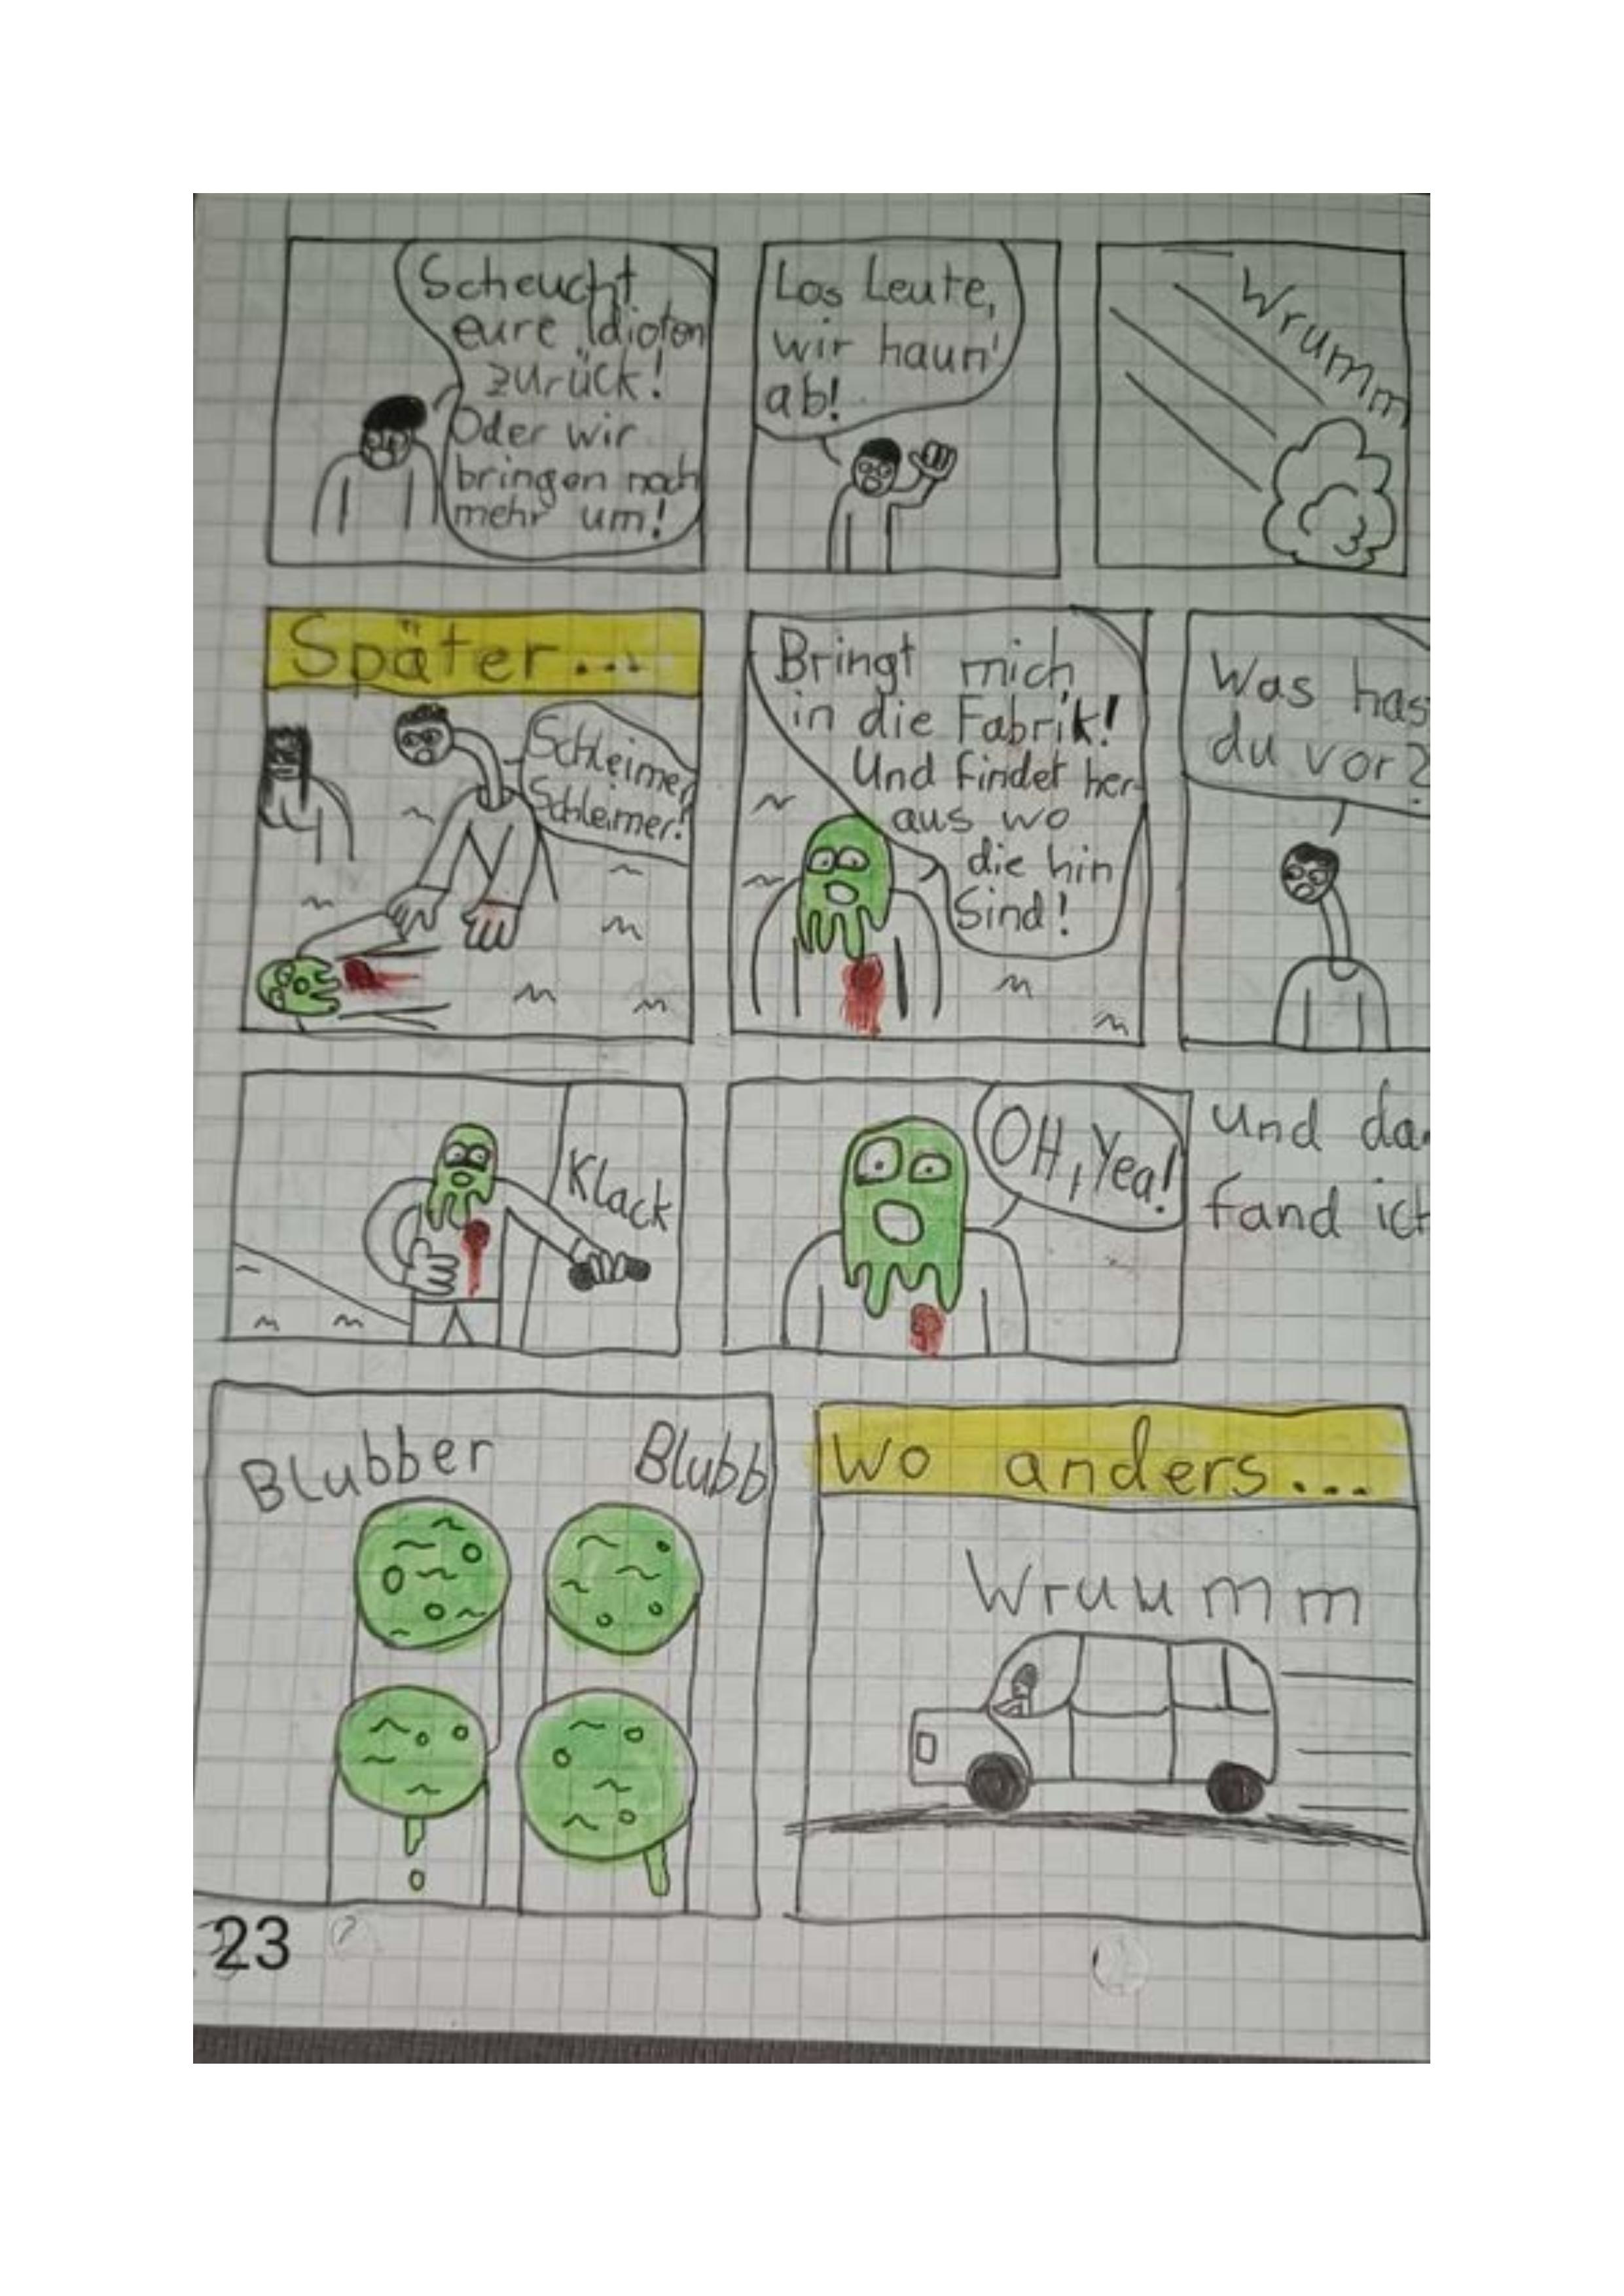 Scheucht
eure Idioten
zurück!
Oder wir
bringen noch
mehr um!
Los Leute,
wir haun'
ab!
Wrumm
Später...
Schleimer,
Schleimer!
Bringt mich
in die Fabrik!
Und findet her-
aus wo
die hin
Sind!
Was has
du vor?
Klack
OH, Yea!
und da
fand ich
Blubber
Blubb
Wo anders...
Wruumm
23